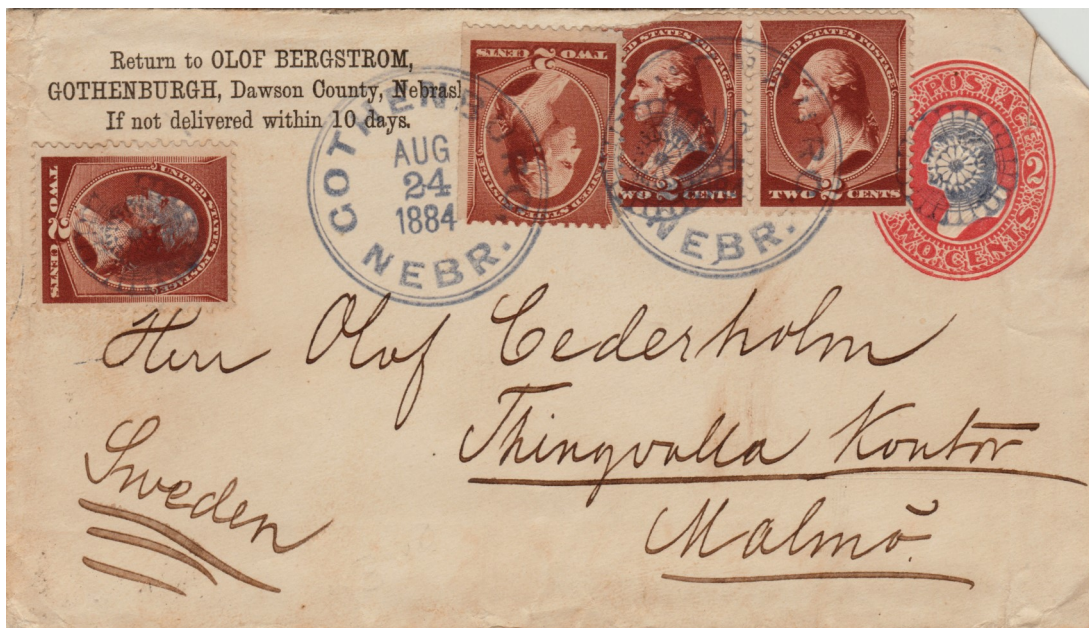 Return to OLOF BERGSTROM,
GOTHENBURGH, Dawson County, Nebrasl
If not delivered within 10 days.
TWO 2 CENTS
UNITED STATES POSTAGE
TWO 2 CENTS
UNITED STATES POSTAGE
TWO 2 CENTS
UNITED STATES POSTAGE
TWO 2 CENTS
POSTAGE
2
TWO CENTS
AUG
24
1884
NEBR.
NEBR.
Herr Olof Cederholm
Thingvalla Kontor
Malmö.
Sweden